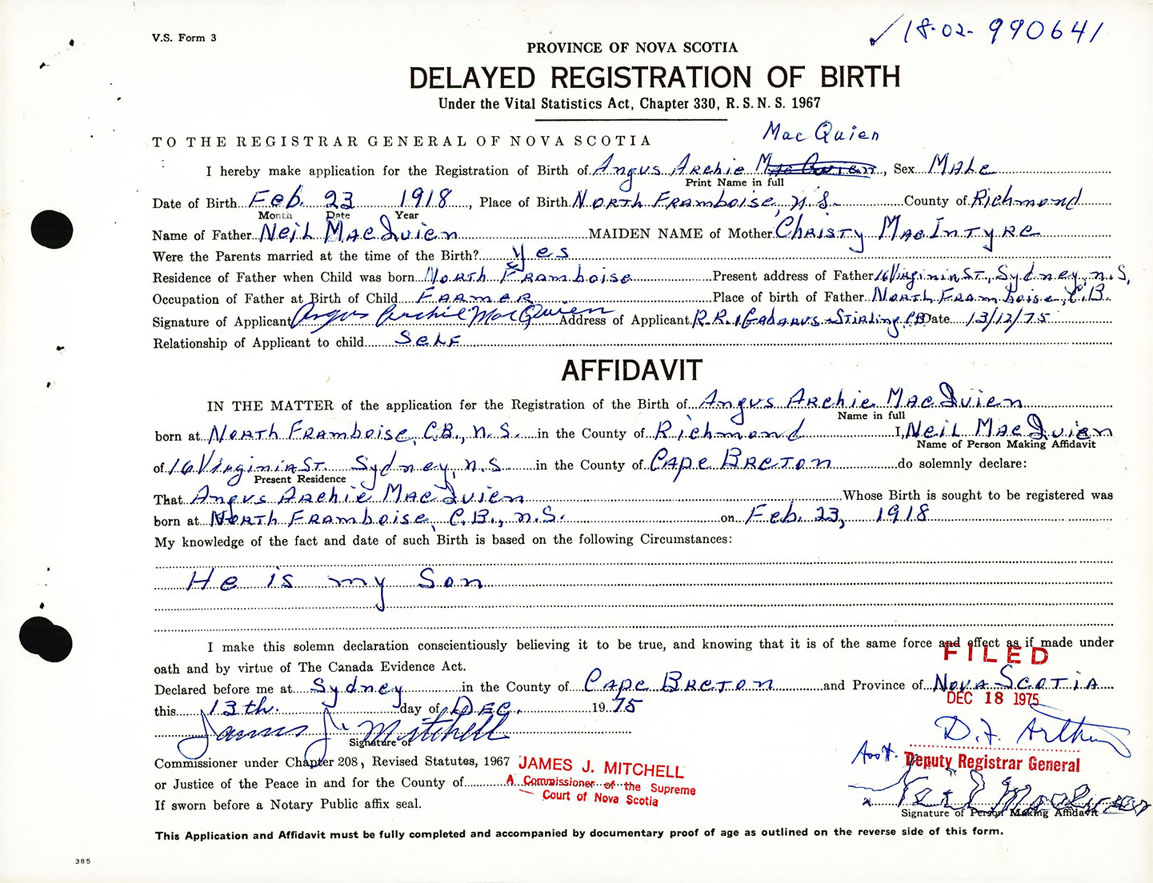 V.S. Form 3
✓ 18-02- 990641
PROVINCE OF NOVA SCOTIA
DELAYED REGISTRATION OF BIRTH
Under the Vital Statistics Act, Chapter 330, R.S.N.S. 1967
TO THE REGISTRAR GENERAL OF NOVA SCOTIA
MacQuien
I hereby make application for the Registration of Birth of Angus Archie MacQuien, Sex Male
Print Name in full
Date of Birth Feb. 23 1918, Place of Birth North Framboise, N.S. County of Richmond
Month Date Year
Name of Father Neil MacQuien MAIDEN NAME of Mother Christy MacIntyre
Were the Parents married at the time of the Birth? Yes
Residence of Father when Child was born North Framboise Present address of Father 16 Virginia St., Sydney, N.S.
Occupation of Father at Birth of Child Farmer Place of birth of Father North Framboise, C.B.
Signature of Applicant Angus Archie MacQuien Address of Applicant R.R.1 Gabarus-Stirling, CB Date 13/12/75
Relationship of Applicant to child Self
AFFIDAVIT
IN THE MATTER of the application for the Registration of the Birth of Angus Archie MacQuien
Name in full
born at North Framboise, C.B., N.S. in the County of Richmond I, Neil MacQuien
Name of Person Making Affidavit
of 16 Virginia St. Sydney, N.S. in the County of Cape Breton do solemnly declare:
Present Residence
That Angus Archie MacQuien Whose Birth is sought to be registered was
born at North Framboise, C.B., N.S. on Feb. 23, 1918
My knowledge of the fact and date of such Birth is based on the following Circumstances:
He is my Son
I make this solemn declaration conscientiously believing it to be true, and knowing that it is of the same force and effect as if made under
oath and by virtue of The Canada Evidence Act.
FILED
Declared before me at Sydney in the County of Cape Breton and Province of Nova Scotia
DEC 18 1975
this 13th. day of Dec. 1975
James J. Mitchell
Signature of
D.F. Arthur
Commissioner under Chapter 208, Revised Statutes, 1967
JAMES J. MITCHELL
Asst. Deputy Registrar General
or Justice of the Peace in and for the County of
A Commissioner of the Supreme
Court of Nova Scotia
x Neil MacQuien
If sworn before a Notary Public affix seal.
Signature of Person Making Affidavit
This Application and Affidavit must be fully completed and accompanied by documentary proof of age as outlined on the reverse side of this form.
385